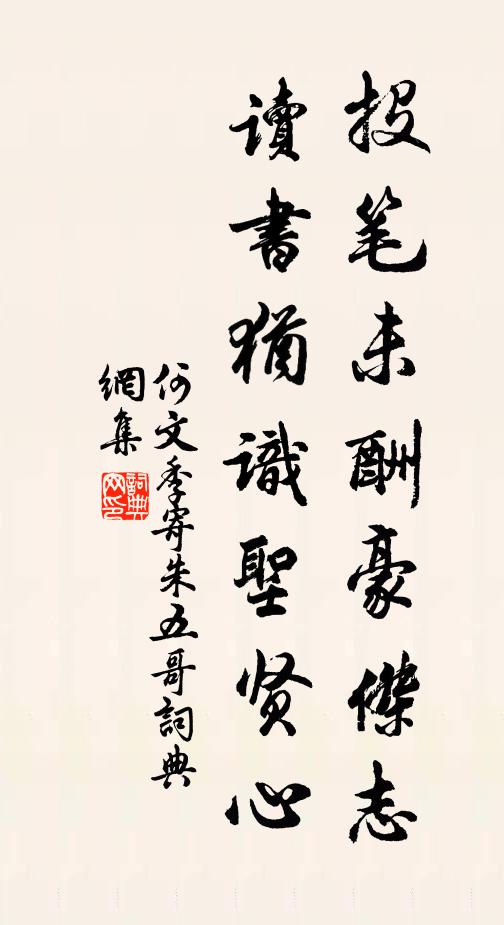 投笔未酬豪傑志
讀書猶識聖贤心
何文季寄朱五哥詞典
網集
詞典网印